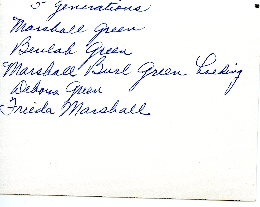 5 generations
Marshall Green
Beulah Green
Marshall Burl Green
Debora Green
Frieda Marshall